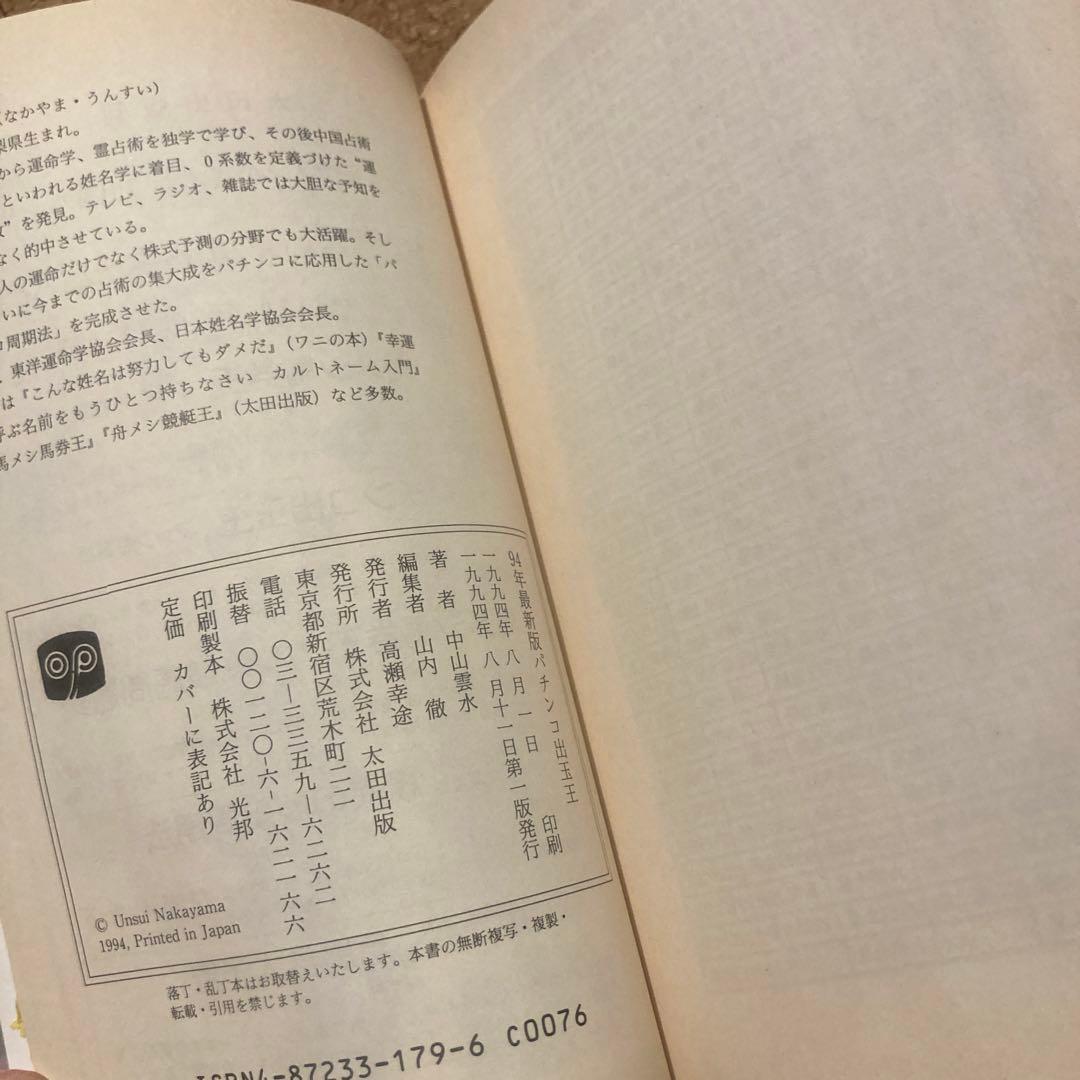 なかやま・うんすい)
県生まれ。
から運命学、霊占術を独学で学び、その後中国占術
といわれる姓名学に着目、0系数を定義づけた“運
”を発見。テレビ、ラジオ、雑誌では大胆な予知を
なく的中させている。
人の運命だけでなく株式予測の分野でも大活躍。そし
いに今までの占術の集大成をパチンコに応用した「パ
周期法」を完成させた。
、東洋運命学協会会長、日本姓名学協会会長。
は『こんな姓名は努力してもダメだ』(ワニの本)『幸運
呼ぶ名前をもうひとつ持ちなさい カルトネーム入門』
馬メシ馬券王』『舟メシ競艇王』(太田出版)など多数。
94年最新版パチンコ出玉王
一九九四年 八 月 一 日 印刷
一九九四年 八 月十一日第一版発行
著 者 中山雲水
編集者 山内 徹
発行者 高瀬幸途
発行所 株式会社 太田出版
東京都新宿区荒木町二二
電話 〇三―三三五九―六二六二
振替 〇〇一二〇-六-一六二一六六
印刷製本 株式会社 光邦
定価 カバーに表記あり
© Unsui Nakayama
1994, Printed in Japan
落丁・乱丁本はお取替えいたします。本書の無断複写・複製・
転載・引用を禁じます。
ISBN4-87233-179-6 C0076